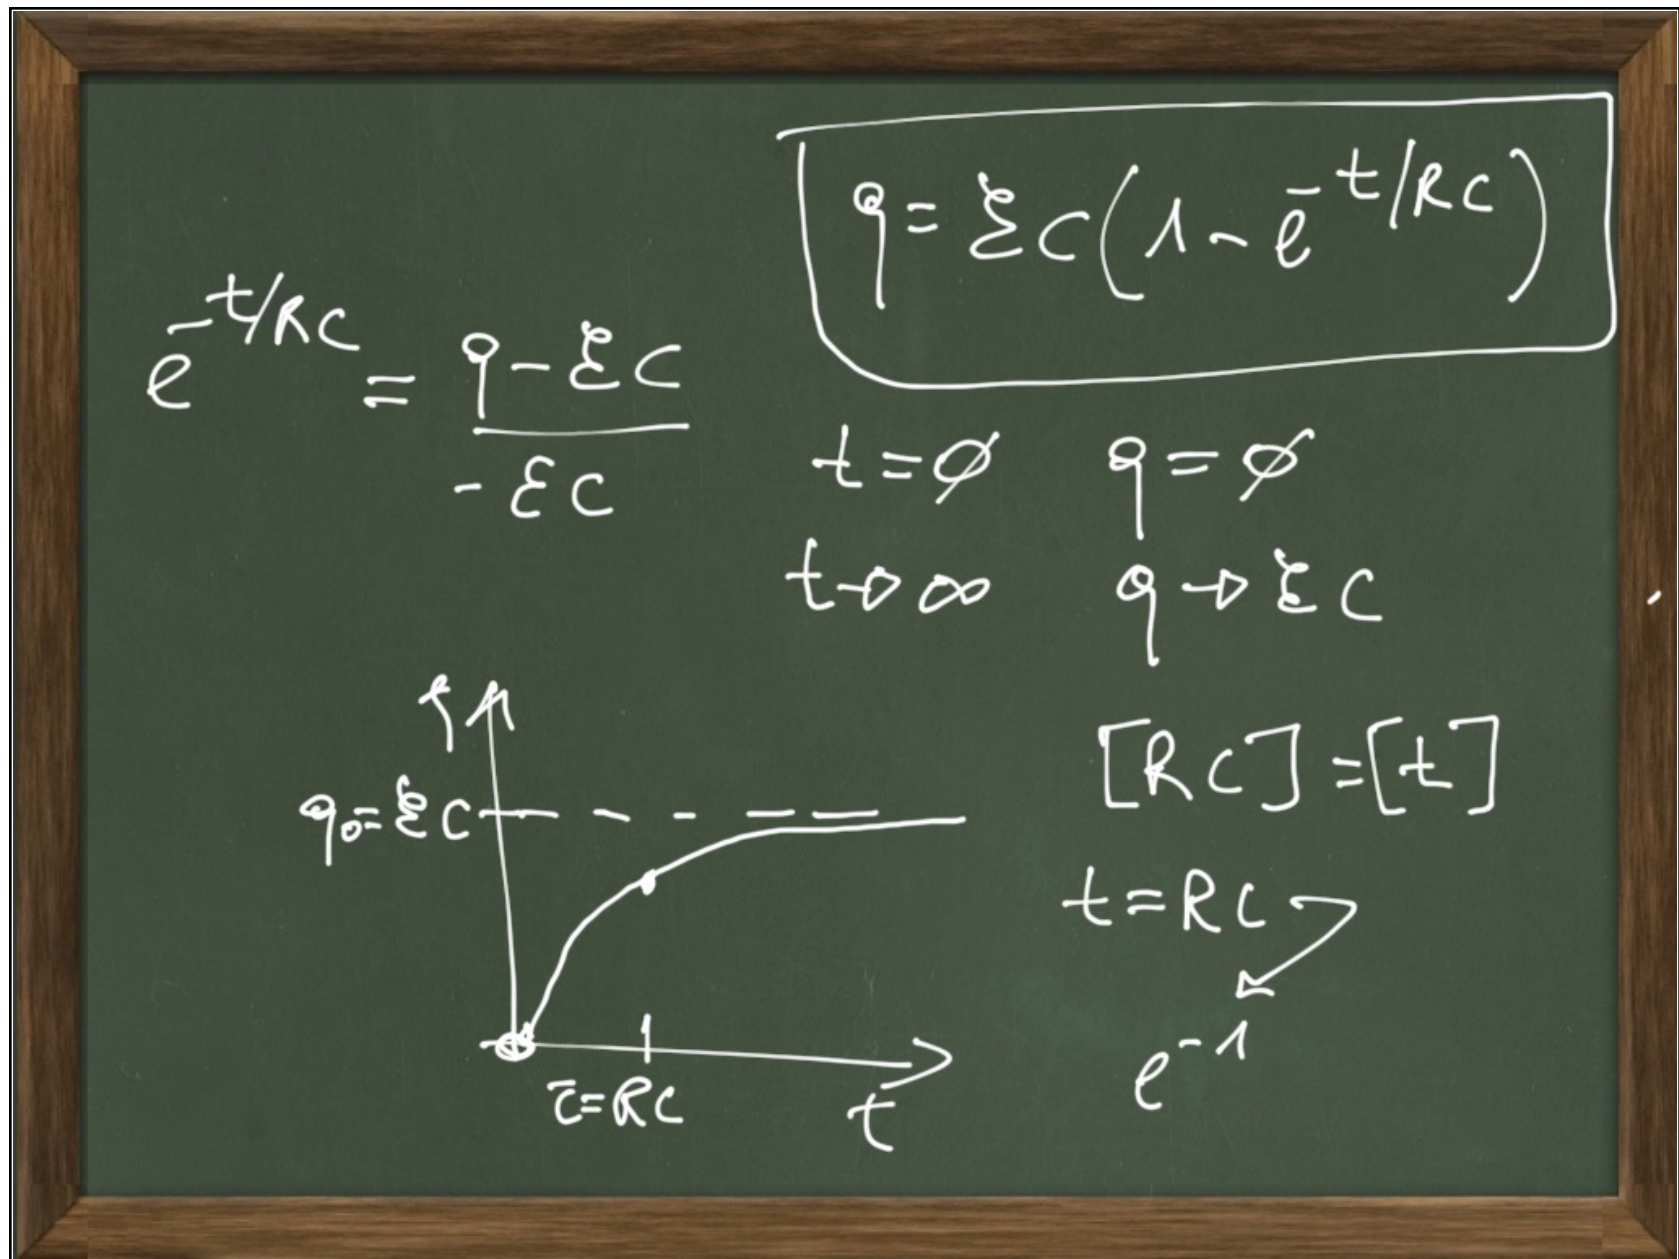 q = ℰC(1 - e^{-t/RC})
e^{-t/RC} = \frac{q - ℰC}{-ℰC}
t = ∅   q = ∅
t → ∞   q → ℰC
q
q₀ = ℰC
τ = RC
t
[RC] = [t]
t = RC
e^{-1}